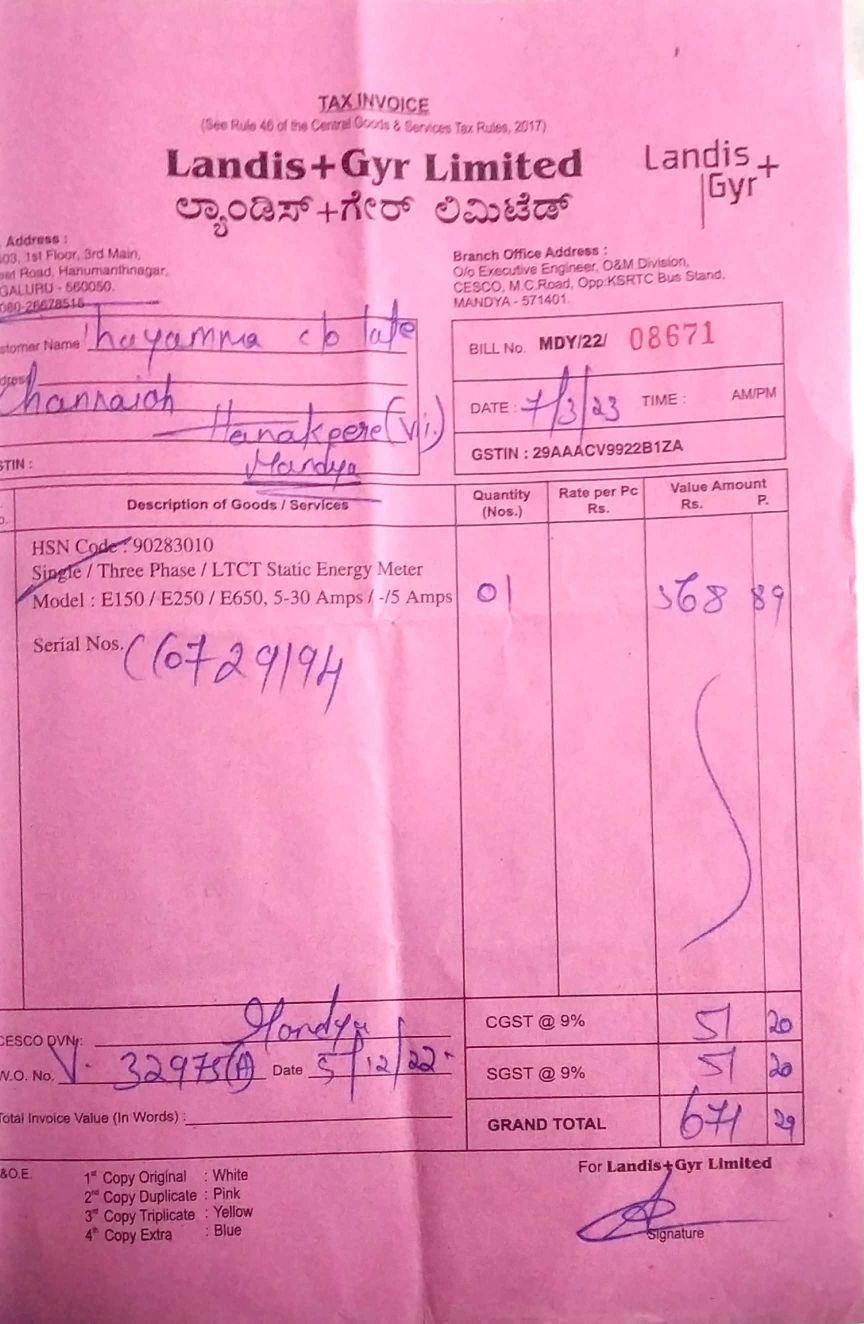 TAX INVOICE
(See Rule 46 of the Central Goods & Services Tax Rules, 2017)
Landis+Gyr Limited
ಲ್ಯಾಂಡಿಸ್+ಗೇರ್ ಲಿಮಿಟೆಡ್
Landis+
Gyr
Address :
03, 1st Floor, 3rd Main,
Road, Hanumanthnagar,
GALURU - 560050.
080-26678515
Branch Office Address :
O/o Executive Engineer, O&M Division,
CESCO, M.C.Road, Opp:KSRTC Bus Stand,
MANDYA - 571401.
stomer Name Thayamma c/o late
dress Channaiah
Hanakere (Vi.)
Mandya
STIN :
BILL No. MDY/22/ 08671
DATE : 7/3/23 TIME : AM/PM
GSTIN : 29AAACV9922B1ZA
Description of Goods / Services Quantity (Nos.) Rate per Pc Rs. Value Amount Rs. P.
HSN Code : 90283010
Single / Three Phase / LTCT Static Energy Meter
Model : E150 / E250 / E650, 5-30 Amps / -/5 Amps 01 568 89
Serial Nos.
CESCO DVN: Mandya
W.O. No. V. 32975(A) Date 5/12/22
Total Invoice Value (In Words) :
CGST @ 9% 51 20
SGST @ 9% 51 20
GRAND TOTAL 671 29
&O.E.
1st Copy Original : White
2nd Copy Duplicate : Pink
3rd Copy Triplicate : Yellow
4th Copy Extra : Blue
For Landis+Gyr Limited
Signature